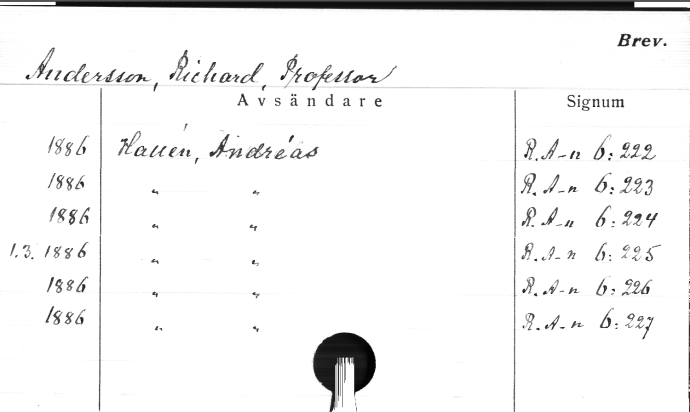 Brev.
Andersson, Richard, Professor
Avsändare Signum
1886 Hallén, Andréas R. A-n 6:222
1886 " " R. A-n 6:223
1886 " " R. A-n 6:224
1.3. 1886 " " R. A-n 6:225
1886 " " R. A-n 6:226
1886 " " R. A-n 6:227